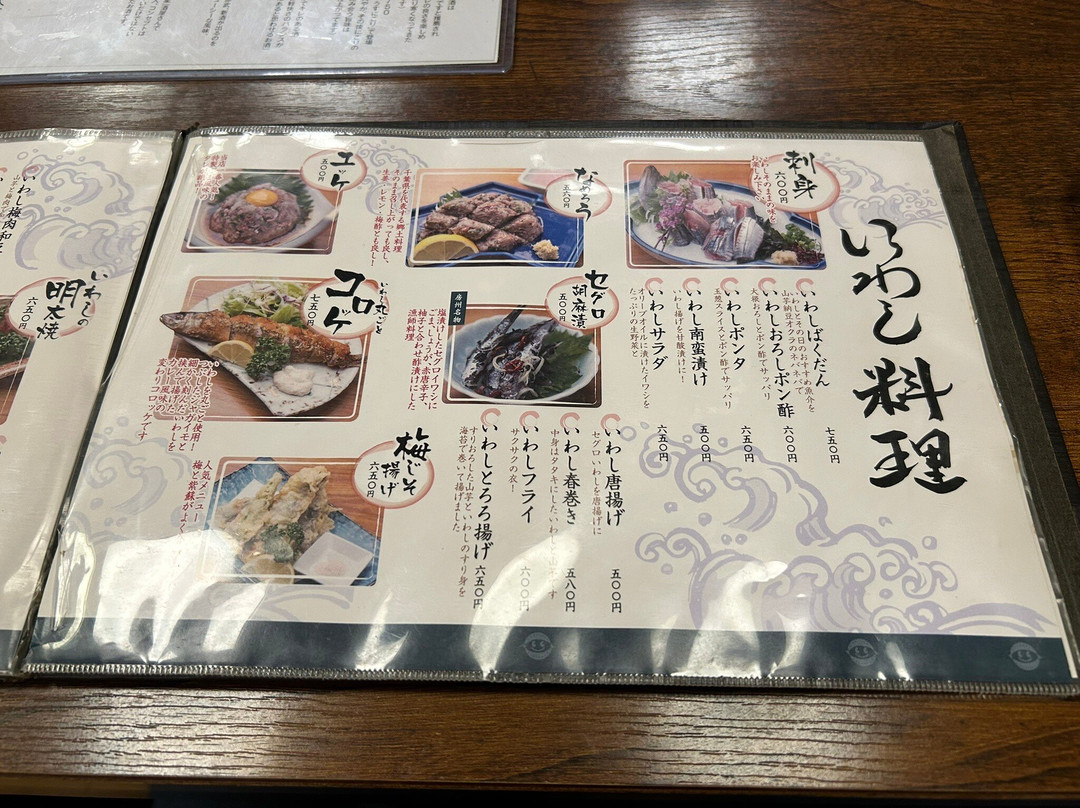 いわし料理
刺身
六〇〇円
そのままの味を
お楽しみ下さい
なめろう
五六〇円
千葉県を代表する郷土料理
そのまま召し上がっても良し、
生姜・レモン・梅酢とも良し!
ユッケ
五〇〇円
いわしばくだん
いわしとその日のおすすめ魚介を
山芋納豆オクラのネバネバで
七五〇円
いわしおろしポン酢
大根おろしとポン酢でサッパリ
六〇〇円
いわしポンタ
玉葱スライスとポン酢でサッパリ
七五〇円
いわし南蛮漬け
いわし揚げを甘酸漬けに!
五〇〇円
いわしサラダ
オリーブオイルに漬けたイワシを
たっぷりの生野菜と
六五〇円
セグロ
胡麻漬
五〇〇円
房州名物
塩漬けしたセグロイワシに
ごま、しょうが、赤唐辛子、
柚子と合わせ酢漬けにした
漁師料理
いわし丸ごと
コロッケ
七五〇円
いわし丸ごと使用!
つぶしたジャガイモと
細かく刻んだいわしを
挟んで揚げた
カレー風味の
変わりコロッケです
いわし唐揚げ
セグロいわしを唐揚げに
五〇〇円
いわし春巻き
中身はタタキにしたいわしと山芋です
五八〇円
いわしフライ
サクサクの衣!
六〇〇円
いわしとろろ揚げ
すりおろした山芋といわしのすり身を
海苔で巻いて揚げました
六五〇円
梅じそ
揚げ
六五〇円
人気メニュー
梅と紫蘇がよく
いわしの
明太焼
六五〇円
いわし梅肉和え